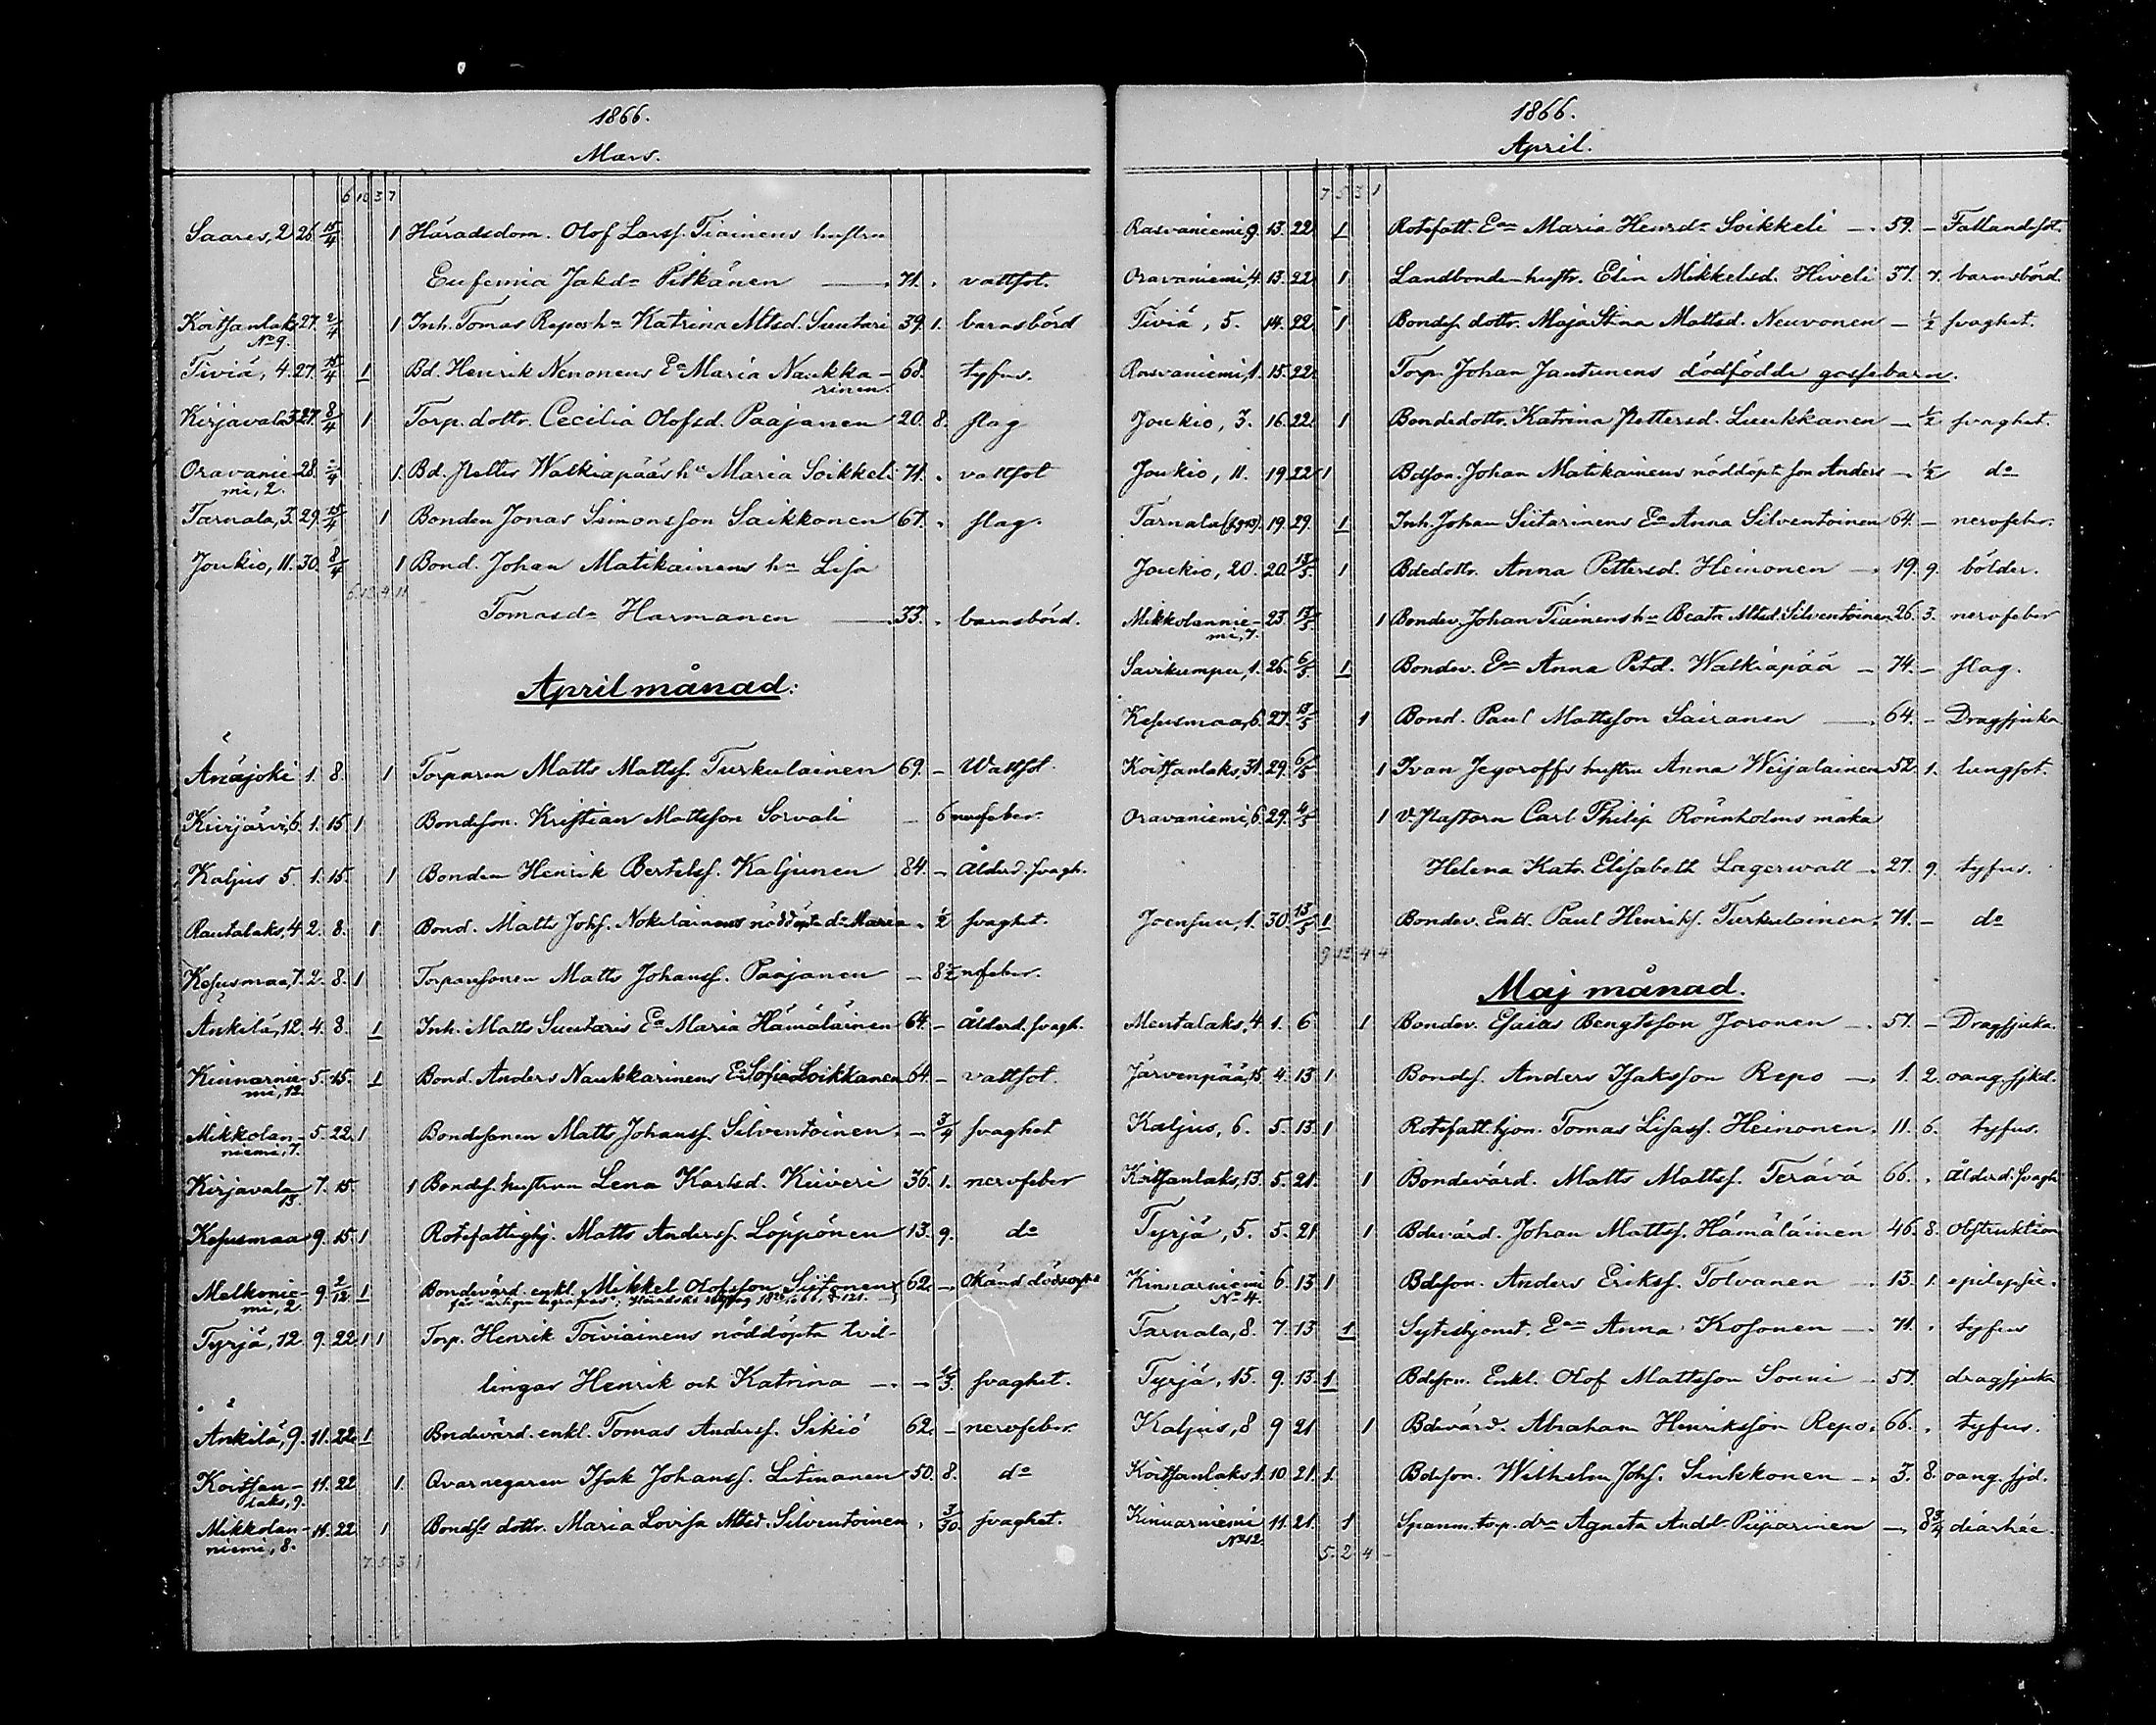 1866.
Mars.
6 10 3 7
Saares, 2 26 15/4 1 Häradsdom. Olof Larss. Tiainens hustru
Eufemia Jakd:r Pitkänen — 71. „ vattsot.
Koitsanlaks, 27. 2/4 1 Inh. Tomas Repos h:u Katrina Mtsd. Suutari 39. 1. barnsbörd
No 9.
Tiviä, 4. 27. 15/4 1 Bd. Henrik Nenonens E:a Maria Naukka- 68. tyfus.
rinen.
Kirjavala 3. 27. 8/4 1 Torp. dottr. Cecilia Olofsd. Paajanen 20. 8. slag
Oravanie- 28. 2/4 1. Bd. Petter Walkiapääs h:u Maria Soikkeli 71. „ vattsot
mi, 2.
Tarnala, 3. 29. 15/4 1 Bonden Jonas Simonsson Saikkonen 67. „ slag.
Joukio, 11. 30. 8/4 1 Bond. Johan Matikainens h:u Lisa
6 12 4 11
Tomasd:r Harmanen — 33. „ barnsbörd.
April månad:
Änäjoki 1. 8. 1 Torparen Matts Mattss. Turkulainen 69. — Wattsot.
Kurjärvi, 6. 1. 15 1 Bondeson. Kristian Mattsson Sorvali — 6 nerfeber.
Kaljus 5. 1. 15. 1 Bonden Henrik Bertelss. Kaljunen 84. — Ålderd. svagh.
Rautalaks, 4 2. 8. 1 Bond. Matts Johs. Nokelainens nöddöpta d:r Maria „ 1/2 svaghet.
Kesusmaa, 7. 2. 8. 1 Torparsonen Matts Johanss. Paajanen — 8 1/2 nfeber.
Änkilä, 12. 4. 8. 1 Inh. Matts Suutaris E:a Maria Hämäläinen 64. — Ålderd. svagh.
Kinnarnie- 5. 15. 1 Bond. Anders Naukkarinens E:a Sofia Loikkanen 64. — vattsot.
mi, 12.
Mikkolan- 5. 22. 1 Bondesonen Matts Johanss. Silventoinen. — 3/4 svaghet
niemi, 7.
Kirjavala 7. 15. 1 Bondes. hustrun Lena Karlsd. Kiiveri 36. 1. nervfeber
13.
Kesusmaa 9. 15. 1 Rotefattighj. Matts Anderss. Löppönen 13. 9. d:o
Melkonie- 9. 2/12 1 Bondevärd. enkl. Mikkel Olofsson Siitonen 62. — Okänd dödsorsak
mi, 2.
Tyrjä, 12 9. 22. 1 1 Torp. Henrik Toiviainens nöddöpta tvil-
lingar Henrik och Katrina — — 1/3. svaghet.
Änkilä, 9. 11. 22. 1 Bndevärd. enkl. Tomas Anderss. Sikiö 62. — nervfeber.
Koitsan- 11. 22 1. Qvarnegaren Isak Johanss. Litmanen 50. 8. d:o
laks, 9.
Mikkolan- 11. 22 1 Bondss dottr. Maria Lovisa Mtsd. Silventoinen „ 3/30. svaghet.
niemi, 8.
7. 5. 3 1
1866.
April.
7 5 3 1
Rasvaniemi, 9. 13. 22 1 Rotefatt. E:an Maria Henrd:r Soikkeli — 59. — Fallandesot.
Oravaniemi, 4. 13. 22. 1. Landbonde-hustr. Elin Mikkelsd. Hiveli 37. 7. barnsbörd.
Tiviä, 5. 14. 22. 1 Bondes. dottr. Maja Stina Mattsd. Neuvonen — 1/2 svaghet.
Rasvaniemi, 1. 15. 22. Torp. Johan Jantunens dödfödde gossebarn.
Joukio, 3. 16. 22. 1 Bondedottr. Katrina Pettersd. Luukkanen — 1/2 svaghet.
Joukio, 11. 19. 22 1 Bdson. Johan Matikainens nöddöpt son Anders — 1/2 d:o
Tarnala 19. 29. 1 Inh. Johan Siitarinens E:a Anna Silventoinen 64. — nervfeber.
Joukio, 20. 20. 13/5. 1 Bdedottr. Anna Pettersd. Heinonen — 19. 9. bölder.
Mikkolannie- 23. 13/5. 1 Bondev. Johan Tiainens h:u Beata Mtsd. Silventoinen 26. 3. nervfeber
mi, 7.
Savikumpu, 1. 26. 6/5. 1 Bondev. E:an Anna Petd. Walkiapää — 74. — slag.
Kesusmaa, 6. 27. 13/5 1 Bond. Paul Mattsson Sairanen — 64. — Dragsjuka
Koitsanlaks, 31. 29. 6/5 1 Ivan Jegoroffs hustru Anna Weijalainen 52. 1. lungsot.
Oravaniemi, 6. 29. 4/5 1 V. Pastorn Carl Philip Rönnholms maka
Helena Katr. Elisabeth Lagerwall — 27. 9. tyfus.
Joensuu, 1. 30. 13/5 1 Bondev. Enkl. Paul Henrikss. Turkulainen. 71. — d:o
9 12 4 4
Maj månad.
Mentalaks, 4. 1. 6. 1 Bondev. Esaias Bengtsson Joronen — 57. — Dragsjuka.
Järvenpää, 15. 4. 13 1 Bondes. Anders Isaksson Repo — 1. 2. oang. sjkd.
Kaljus, 6. 5. 13 1 Rotefatt. hjon. Tomas Lisass. Heinonen. 11. 6. tyfus.
Koitsanlaks, 13. 5. 21. 1 Bondevärd. Matts Mattss. Terävä 66. „ Ålderd. svagh
Tyrjä, 5. 5. 21 1 Bdevärd. Johan Mattss. Hämäläinen 46. 8. Obstruktion
Kinnarniemi 6. 13 1 Bdeson. Anders Erikss. Tolvanen — 13. 1. epilepsie.
No 4.
Tarnala, 8. 7. 13 1 Syteshjonet. E:an Anna Kosonen — 71. „ tyfus
Tyrjä, 15. 9. 13. 1 Bdeson. Enkl. Olof Mattsson Sonni — 57. dragsjuka
Kaljus, 8 9 21 1 Bdevärd. Abraham Henriksson Repo. 66. „ tyfus.
Koitsanlaks, 1. 10. 21. 1. Bdeson. Wilhelm Johs. Sinkkonen — 3. 8. oang. sjd.
Kinnarniemi 11. 21. 1 Spanm. torp. d:r Agneta Andd:r Piiparinen — 8 3/4 diarhée.
No 12.
5. 2 4 —